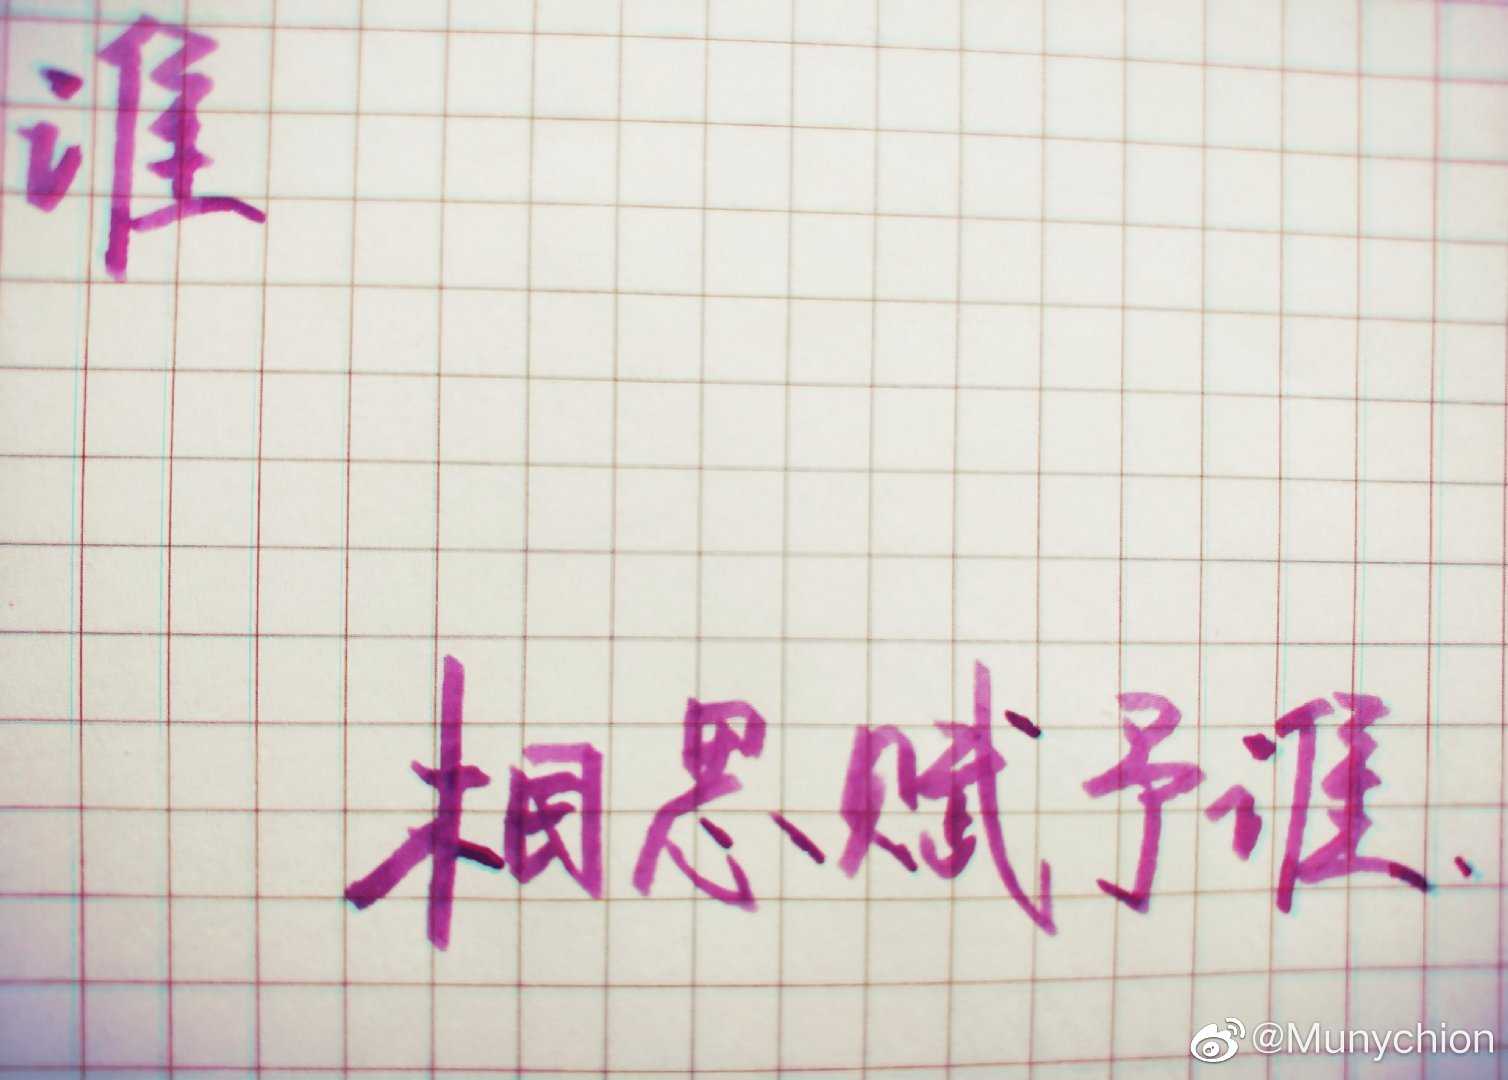 谁
相思赋予谁.
@Munychion